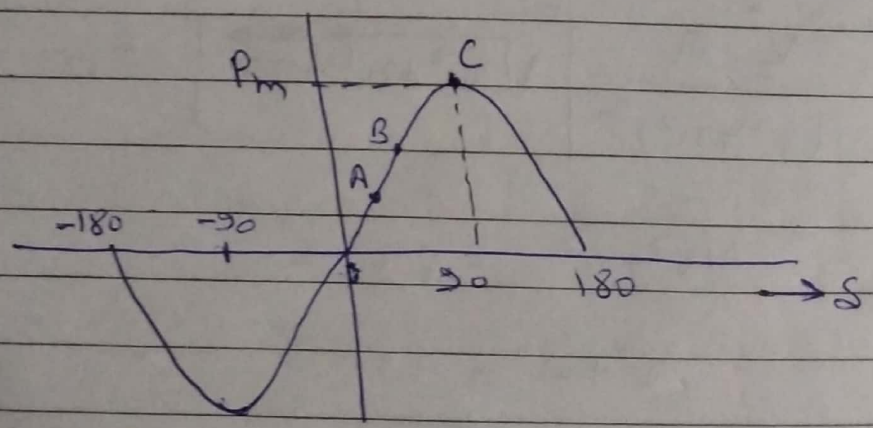 C
Pm
B
A
-180 -90
90 180
δ